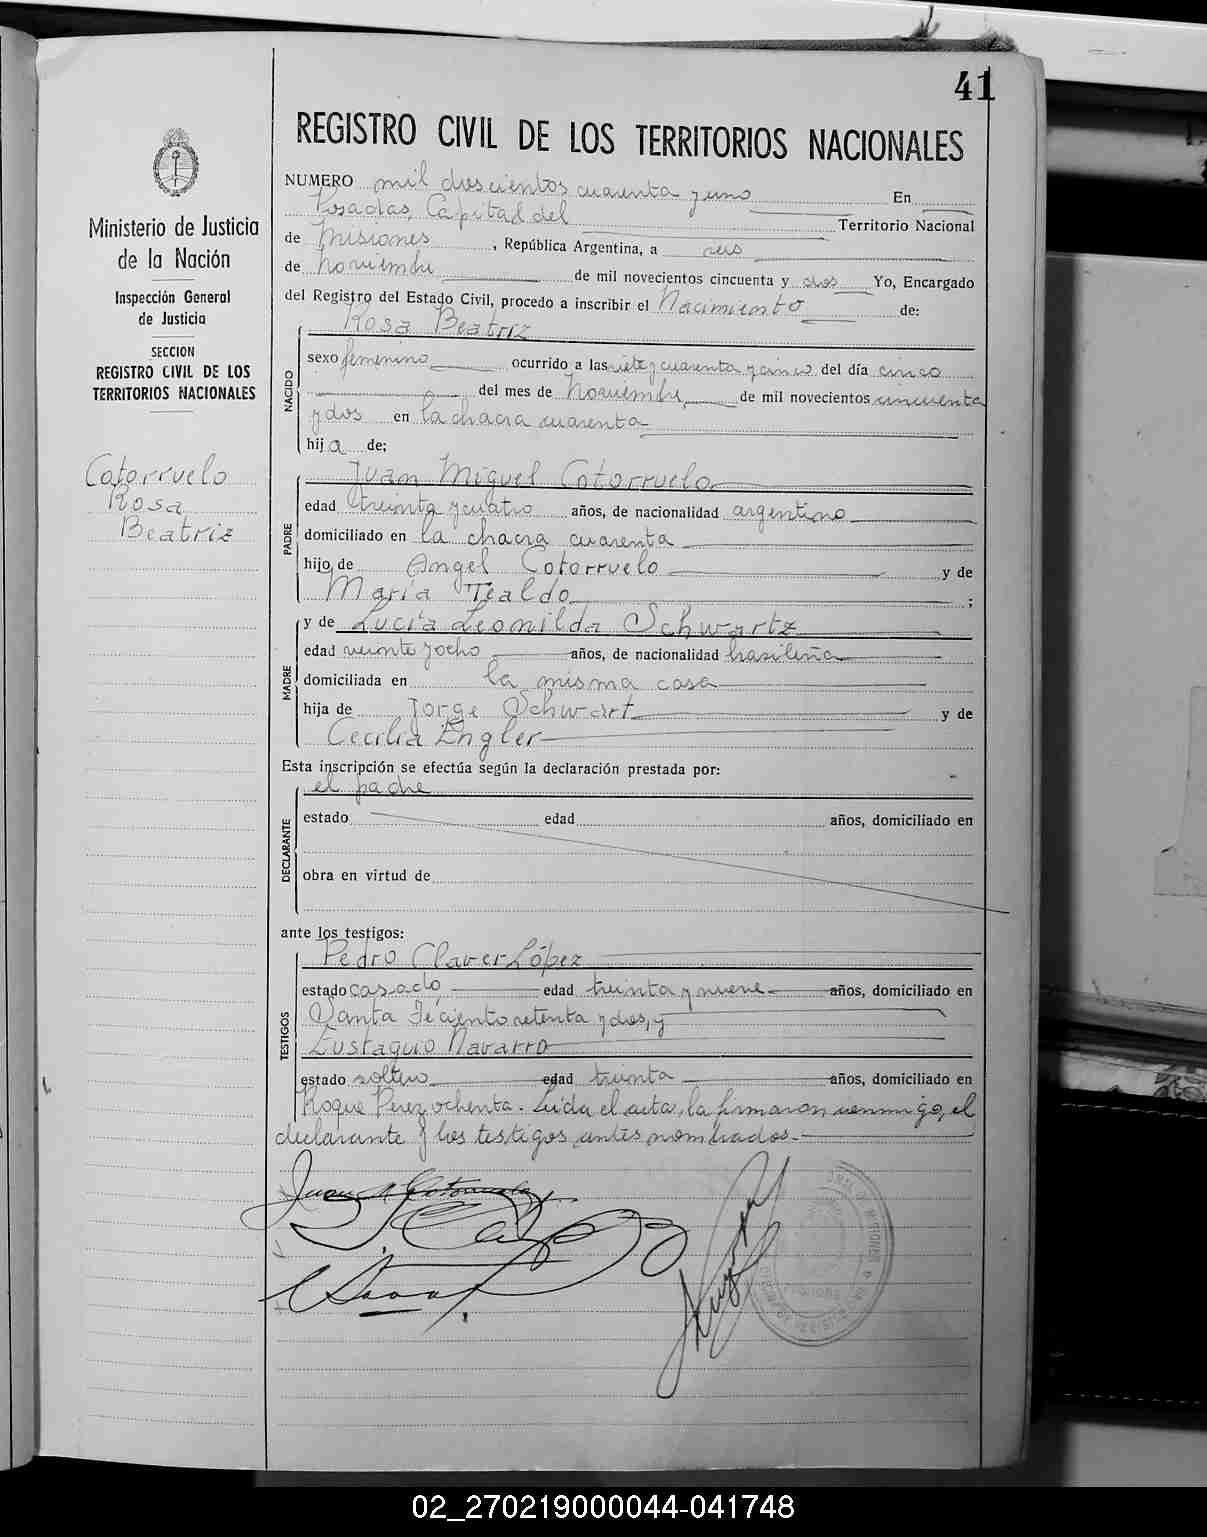 41
REGISTRO CIVIL DE LOS TERRITORIOS NACIONALES
Ministerio de Justicia
de la Nación
Inspección General
de Justicia
SECCION
REGISTRO CIVIL DE LOS
TERRITORIOS NACIONALES
Cotorruelo
Rosa
Beatriz
NUMERO mil doscientos cuarenta y uno En
Posadas, Capital del Territorio Nacional
de Misiones, República Argentina, a seis
de Noviembre de mil novecientos cincuenta y dos Yo, Encargado
del Registro del Estado Civil, procedo a inscribir el Nacimiento de:
Rosa Beatriz
NACIDO
sexo femenino ocurrido a las siete y cuarenta y cinco del día cinco
del mes de Noviembre, de mil novecientos cincuenta
y dos en la chacra cuarenta
hija de;
Juan Miguel Cotorruelo
PADRE
edad treinta y cuatro años, de nacionalidad argentino
domiciliado en la chacra cuarenta
hijo de Angel Cotorruelo y de
María Tealdo ;
y de Lucía Leonilda Schwartz
MADRE
edad veinte y ocho años, de nacionalidad brasileña
domiciliada en la misma casa
hija de Jorge Schwart y de
Cecilia Engler
Esta inscripción se efectúa según la declaración prestada por:
el padre
DECLARANTE
estado edad años, domiciliado en
obra en virtud de
ante los testigos:
Pedro Claver López
TESTIGOS
estado casado edad treinta y nueve años, domiciliado en
Santa Fe ciento setenta y dos, y
Eustaquio Navarro
estado soltero edad treinta años, domiciliado en
Roque Perez ochenta. Leída el acta, la firmaron conmigo, el
declarante y los testigos antes nombrados.
Juan M Cotorruelo
02_270219000044-041748